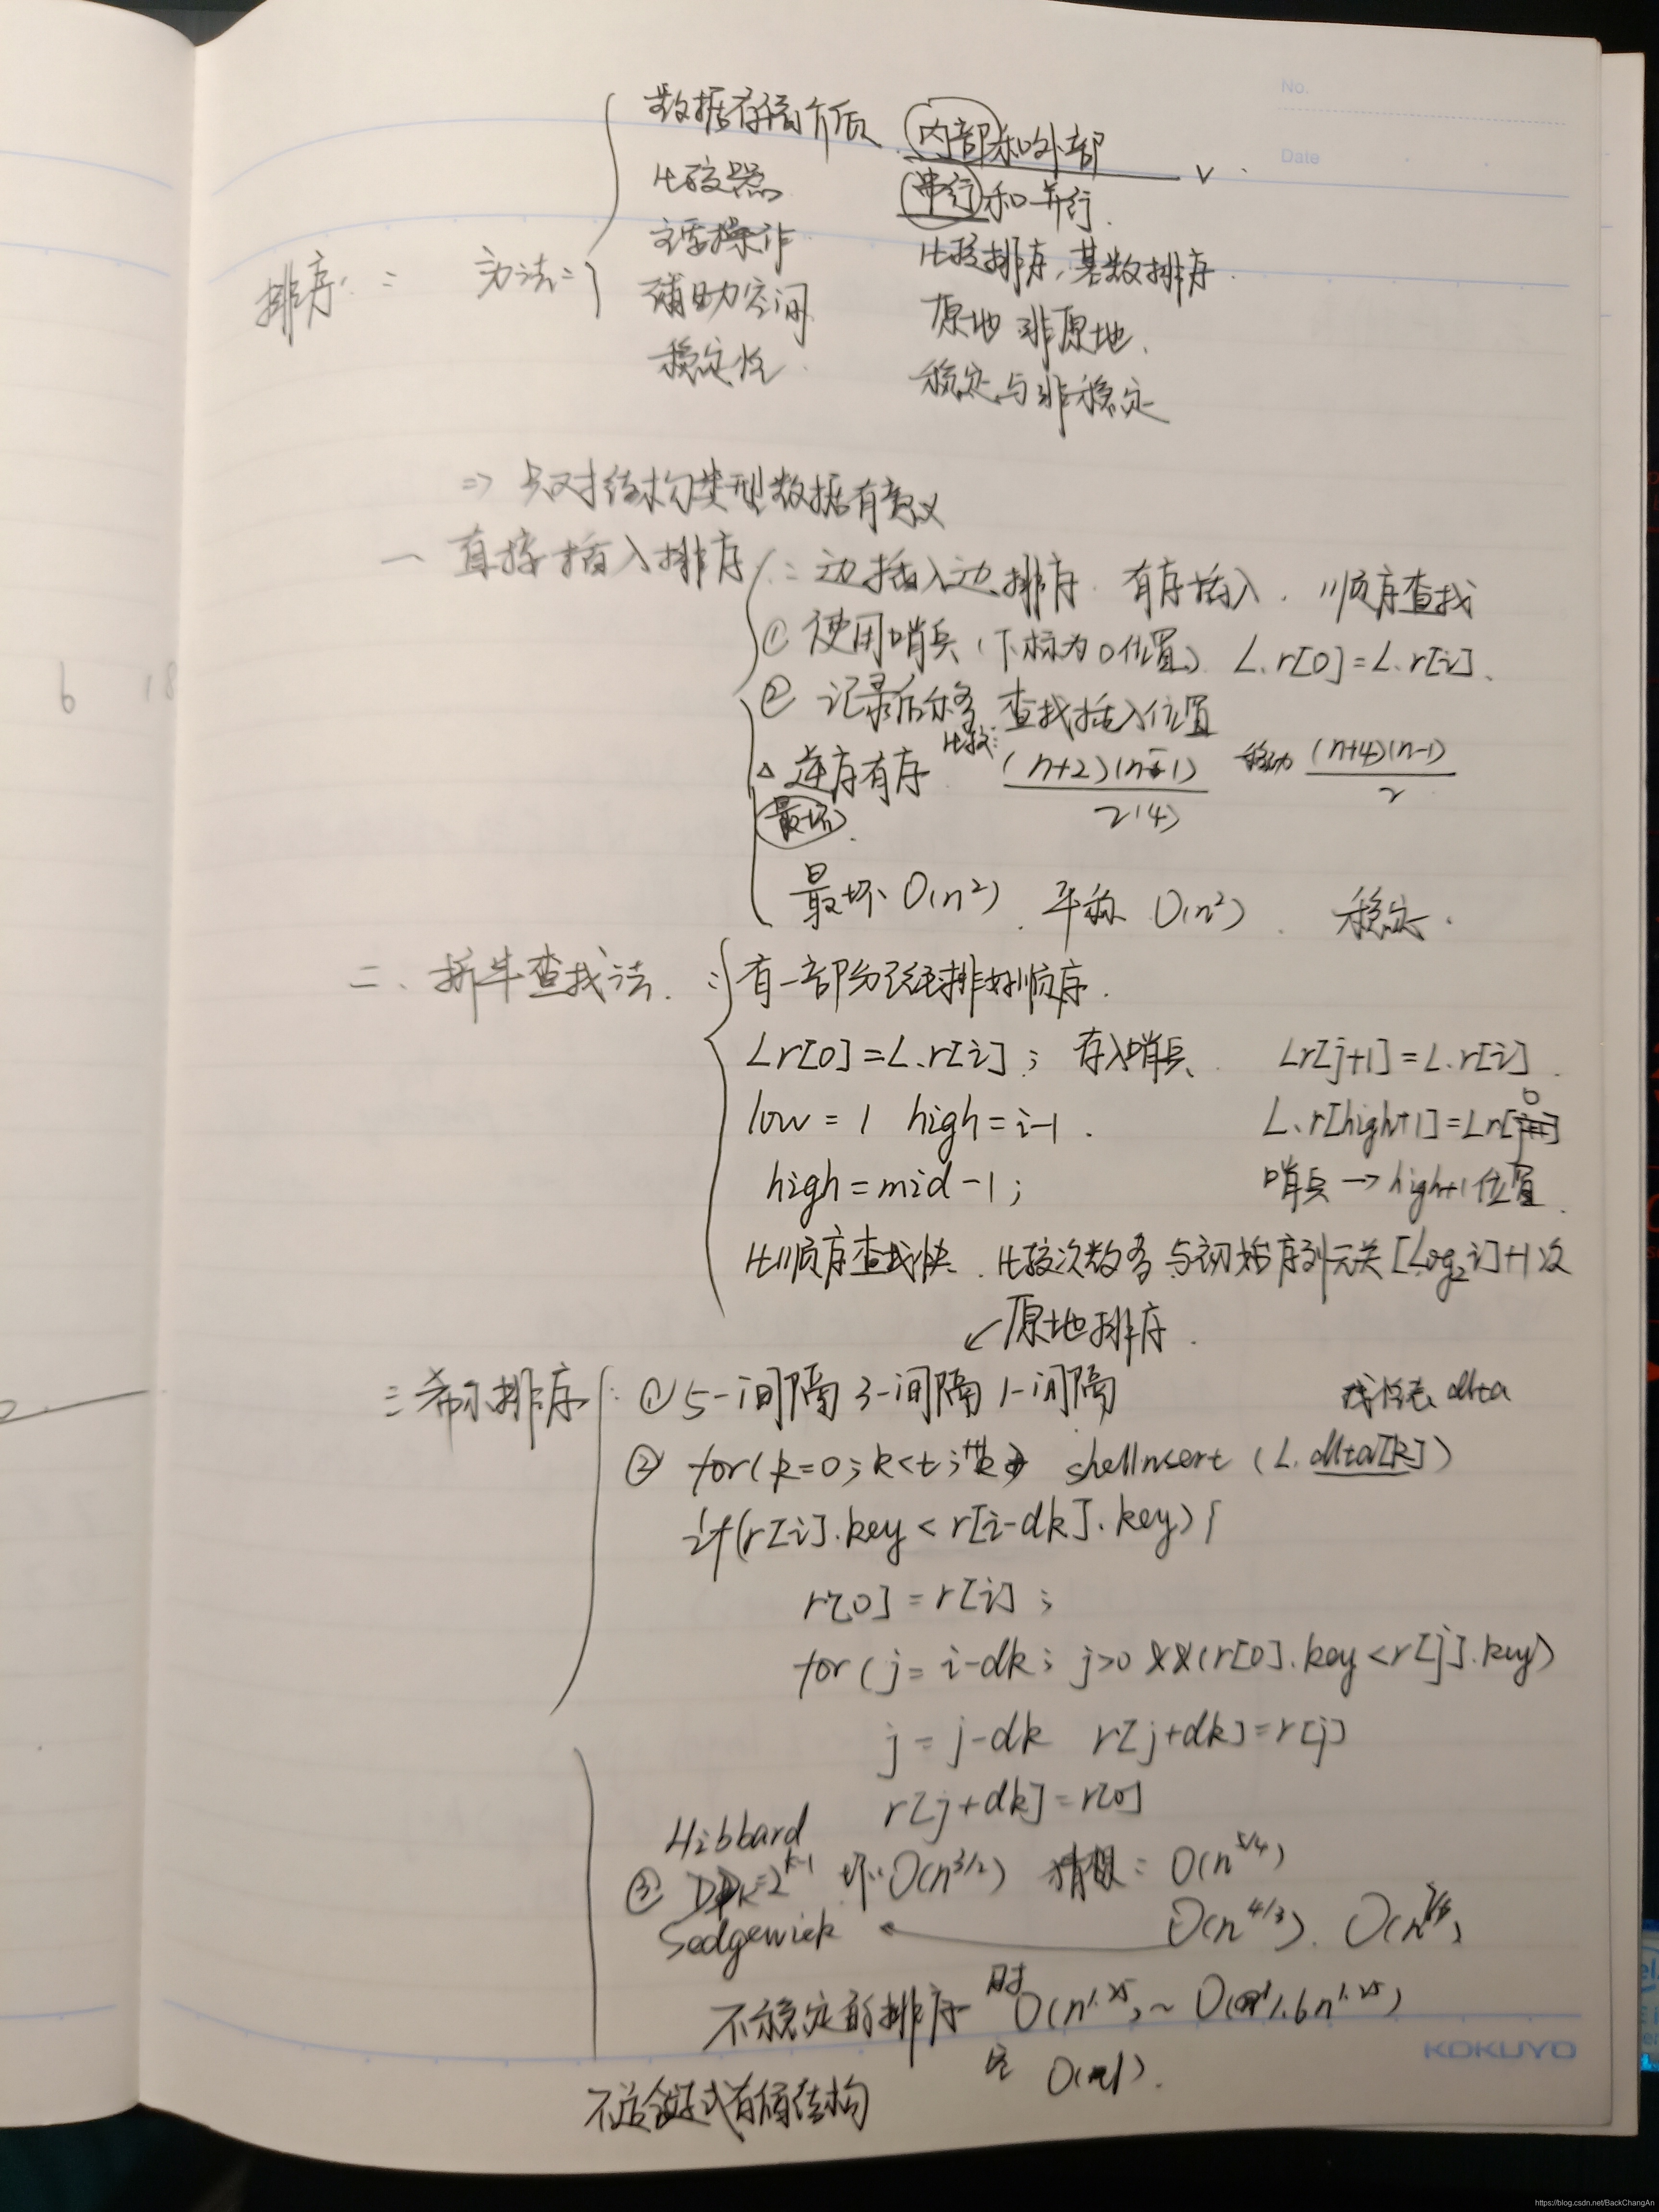 No.
Date
数据存储介质 内部和外部
比较器 串行和并行.
主要操作 比较排序,基数排序.
排序: 方法: 辅助空间 原地 非原地.
稳定性 稳定与非稳定
⇒ 只对结构类型数据有意义
一 直接插入排序 : 边插入边排序. 有序插入. 顺序查找
① 使用哨兵(下标为0位置) L.r[0]=L.r[i].
② 记录后移 查找插入位置
△ 逆序有序 比较: (n+2)(n-1)/2(4) 移动 (n+4)(n-1)/2
最坏.
最坏 O(n²). 平均 O(n²). 稳定.
二、折半查找法. : 有一部分已经排好顺序.
Lr[0]=L.r[i]; 存入哨兵. Lr[j+1]=L.r[i].
low=1 high=i-1. L.r[high+1]=Lr[0]
high=mid-1; 哨兵→high+1位置.
比顺序查找快. 比较次数 与初始序列无关 [Log₂i]+1次
↙原地排序.
三 希尔排序 : ① 5-间隔 3-间隔 1-间隔 线性表 dlta
② for(k=0;k<t;++k) shellInsert (L.dlta[k])
if(r[i].key<r[i-dk].key){
r[0]=r[i];
for(j=i-dk; j>0 &&(r[0].key<r[j].key)
j=j-dk r[j+dk]=r[j]
r[j+dk]=r[0]
Hibbard
③ Dk=2^k-1 坏: O(n^3/2) 猜想: O(n^5/4)
Sedgewick ← O(n^4/3).
不稳定的排序 时 O(n^1.25)~O(1.6n^1.25)
空 O(1).
不适合链式存储结构
KOKUYO
6 18
https://blog.csdn.net/BackChangAn